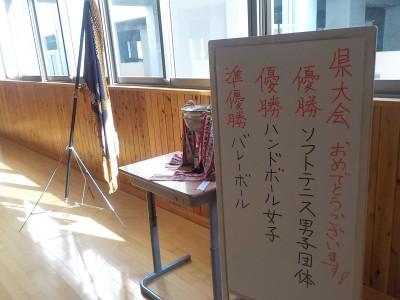 県大会 おめでとうございます!
優勝 ソフトテニス男子団体
優勝 ハンドボール女子
準優勝 バレーボール